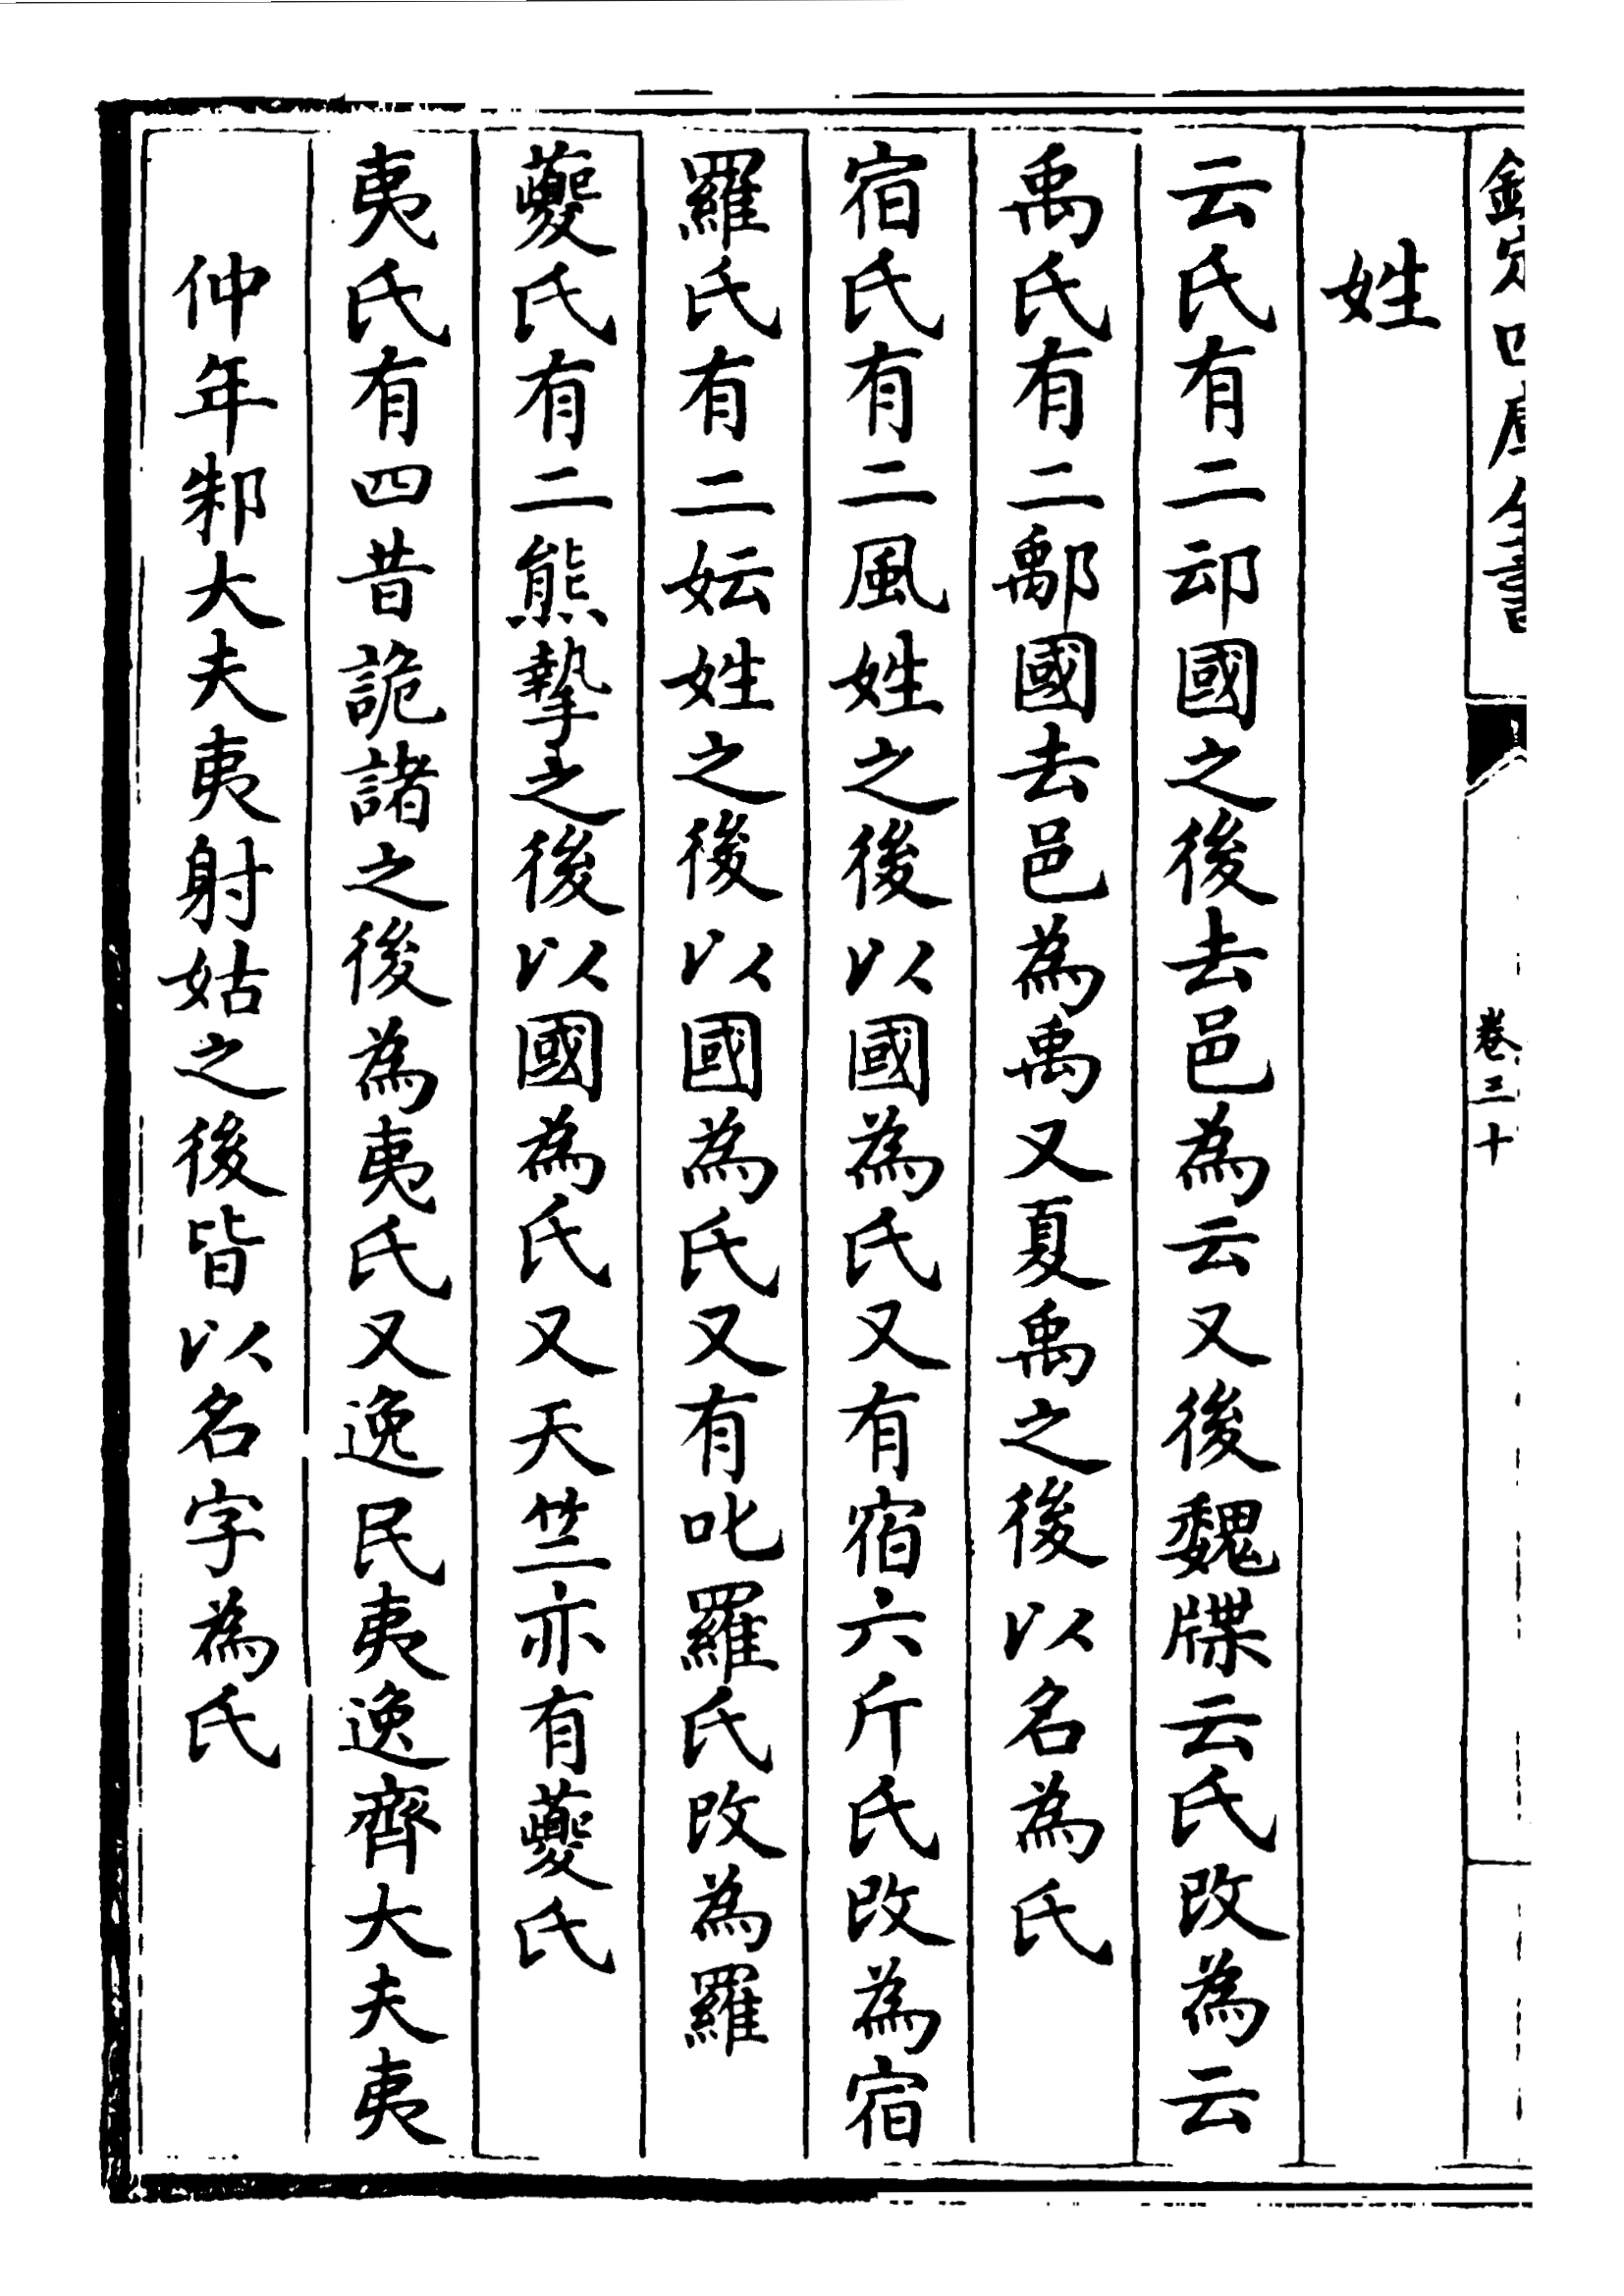 欽定四庫全書
卷三十
姓
云氏有二䢵國之後去邑為云又後魏牒云氏改為云
禹氏有二鄅國去邑為禹又夏禹之後以名為氏
宿氏有二風姓之後以國為氏又有宿六斤氏改為宿
羅氏有二妘姓之後以國為氏又有叱羅氏改為羅
夔氏有二熊摯之後以國為氏又天竺亦有夔氏
夷氏有四昔詭諸之後為夷氏又逸民夷逸齊大夫夷
仲年邾大夫夷射姑之後皆以名字為氏